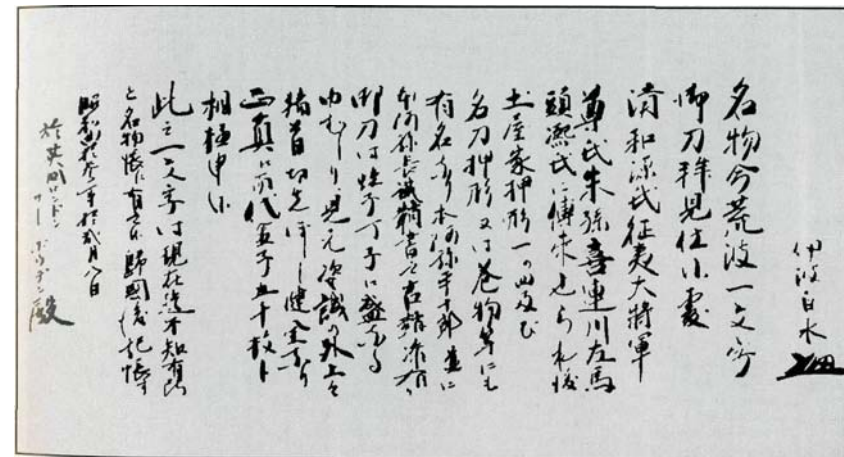 伊波白水
名物今荒波一文字
御刀拝見仕候處
清和源氏征夷大将軍
尊氏末孫喜連川左馬
頭凞氏に傳来せられ後
土屋家押形一の四及び
名刀押形又は巻物等にも
有名なり本阿弥平十郎並に
本阿弥長識鞘書之古鞘添有り
御刀は焼刃丁子に盛なる
姿誠の外上々
切先ぼーし健全なり
正真に而代金子五十枚と
相極申候
此之一文字は現在迄不知有所
と名物帳に有之候歸國後記帳す
昭和四拾参年拾弐月八日
於英國ロンドン
サー ボウデン殿